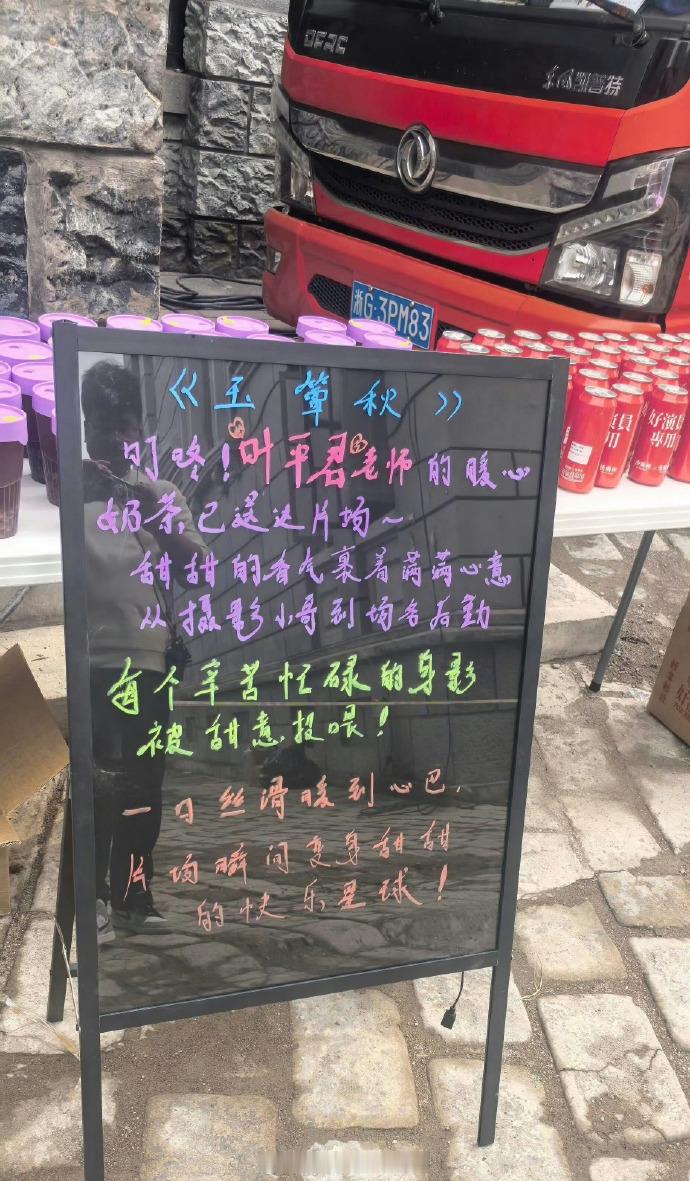 DFRC
东风凯普特
浙G·3PM83
好演員
專用
員
用
《玉簟秋》
叮咚！叶平君老师的暖心
奶茶，已送达片场～
甜甜的香气裹着满满心意
从摄影小哥到场务爷勤
每个辛苦忙碌的身影
被甜意投喂！
一口丝滑暖到心巴，
片场瞬间变身甜甜
的快乐星球！